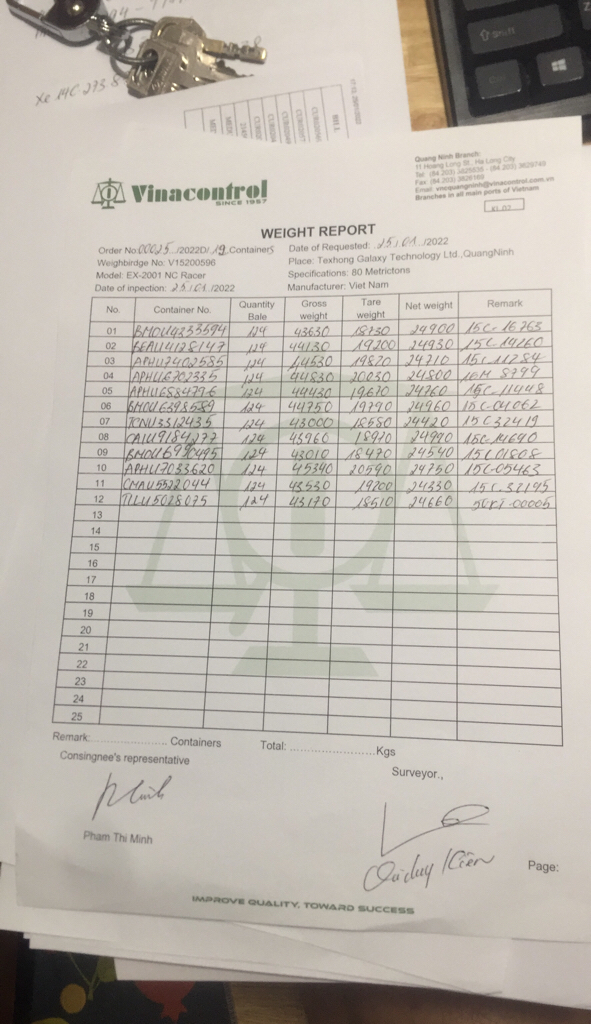 Xe 14C-273.8
Shift
Ctrl
Quang Ninh Branch:
11 Hoang Long St., Ha Long City
Email: vncquangninh@vinacontrol.com.vn
Branches in all main ports of Vietnam
Vinacontrol
SINCE 1957
WEIGHT REPORT
Order No:00025./2022D/.19.Containers Date of Requested: .25/.01./2022
Weighbirdge No: V15200596 Place: Texhong Galaxy Technology Ltd.,QuangNinh
Model: EX-2001 NC Racer Specifications: 80 Metrictons
Date of inpection: 25/.01./2022 Manufacturer: Viet Nam
No. Container No. Quantity Bale Gross weight Tare weight Net weight Remark
01 BMOU4333594 124 43630 18730 24900 15C-16763
02 124 44130 19200 24930 15C-14260
03 APHU7402585 124 44530 19820 24710 15C-11284
04 APHU6702335 124 44830 20030 24800 8799
05 APHU6884796 124 44430 19670 24760 15C-11448
06 BMOU6398589 124 44750 19790 24960 15C-04062
07 TCNU3312435 124 43000 18580 24420 15C32419
08 CAIU9184277 124 43960 18970 24990 15C-14690
09 BMOU6990495 124 43010 18470 24540 15C01808
10 APHU7033620 124 45340 20590 24750 15C-05463
11 CMAU5522044 124 43530 19200 24330 15C-37195
12 TLLU5028075 124 43170 18510 24660
13
14
15
16
17
18
19
20
21
22
23
24
25
Remark:........................ Containers Total: ........................Kgs
Consingnee's representative
Surveyor.,
Pham Thi Minh
Page:
IMPROVE QUALITY, TOWARD SUCCESS